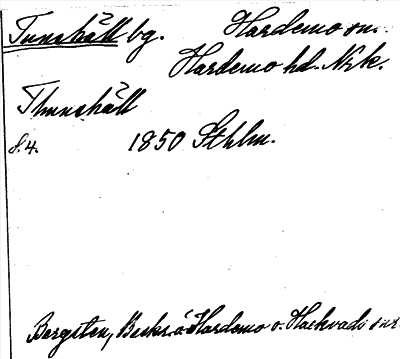 Tunshäll bg. Hardemo sn.
Hardemo hd. Nrk.
Thunshäll
s. 4. 1850 Sthlm.
Bergsten, Beskr. ö Hardemo o. Hackvads snr